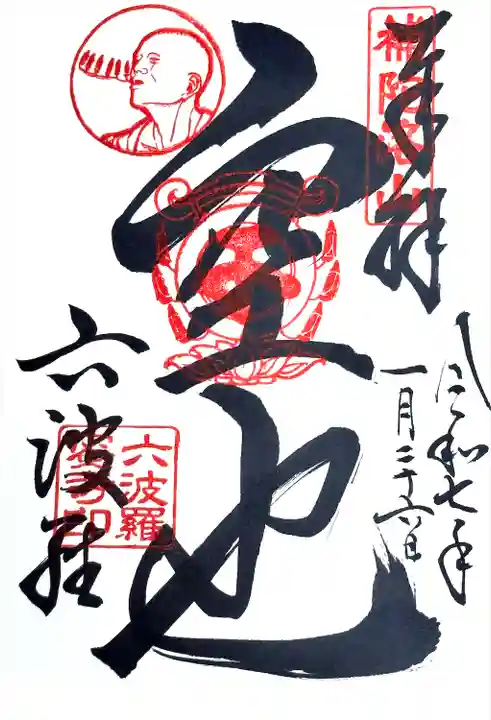 奉拝
令和七年
一月二十六日
補陀洛山
空也
六波羅
六波羅
蜜寺印